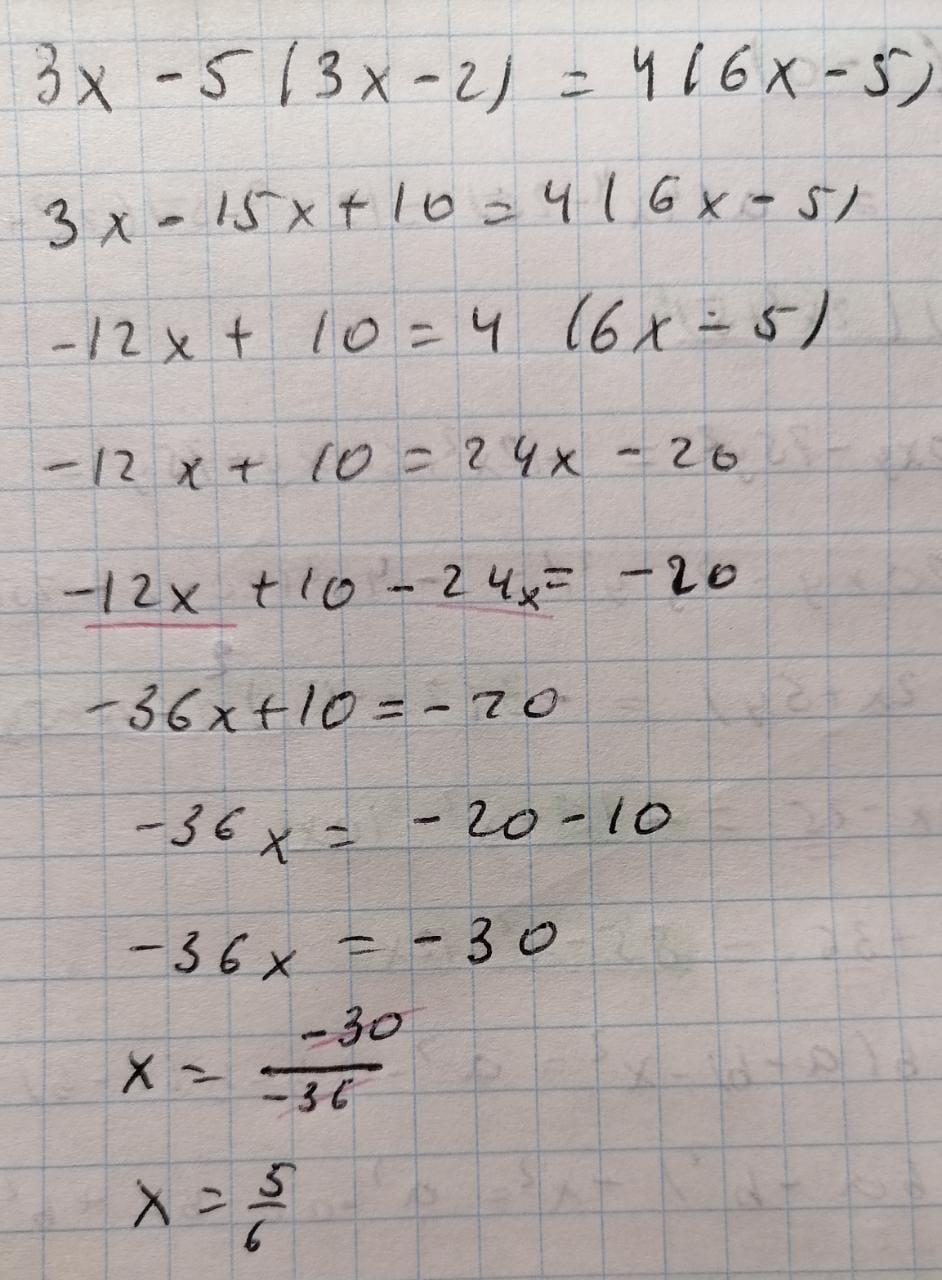 3x - 5 (3x - 2) = 4(6x - 5)
3x - 15x + 10 = 4(6x - 5)
-12x + 10 = 4 (6x - 5)
-12x + 10 = 24x - 20
-12x + 10 - 24x = -20
-36x + 10 = -20
-36x = -20 - 10
-36x = -30
x = \frac{-30}{-36}
x = \frac{5}{6}